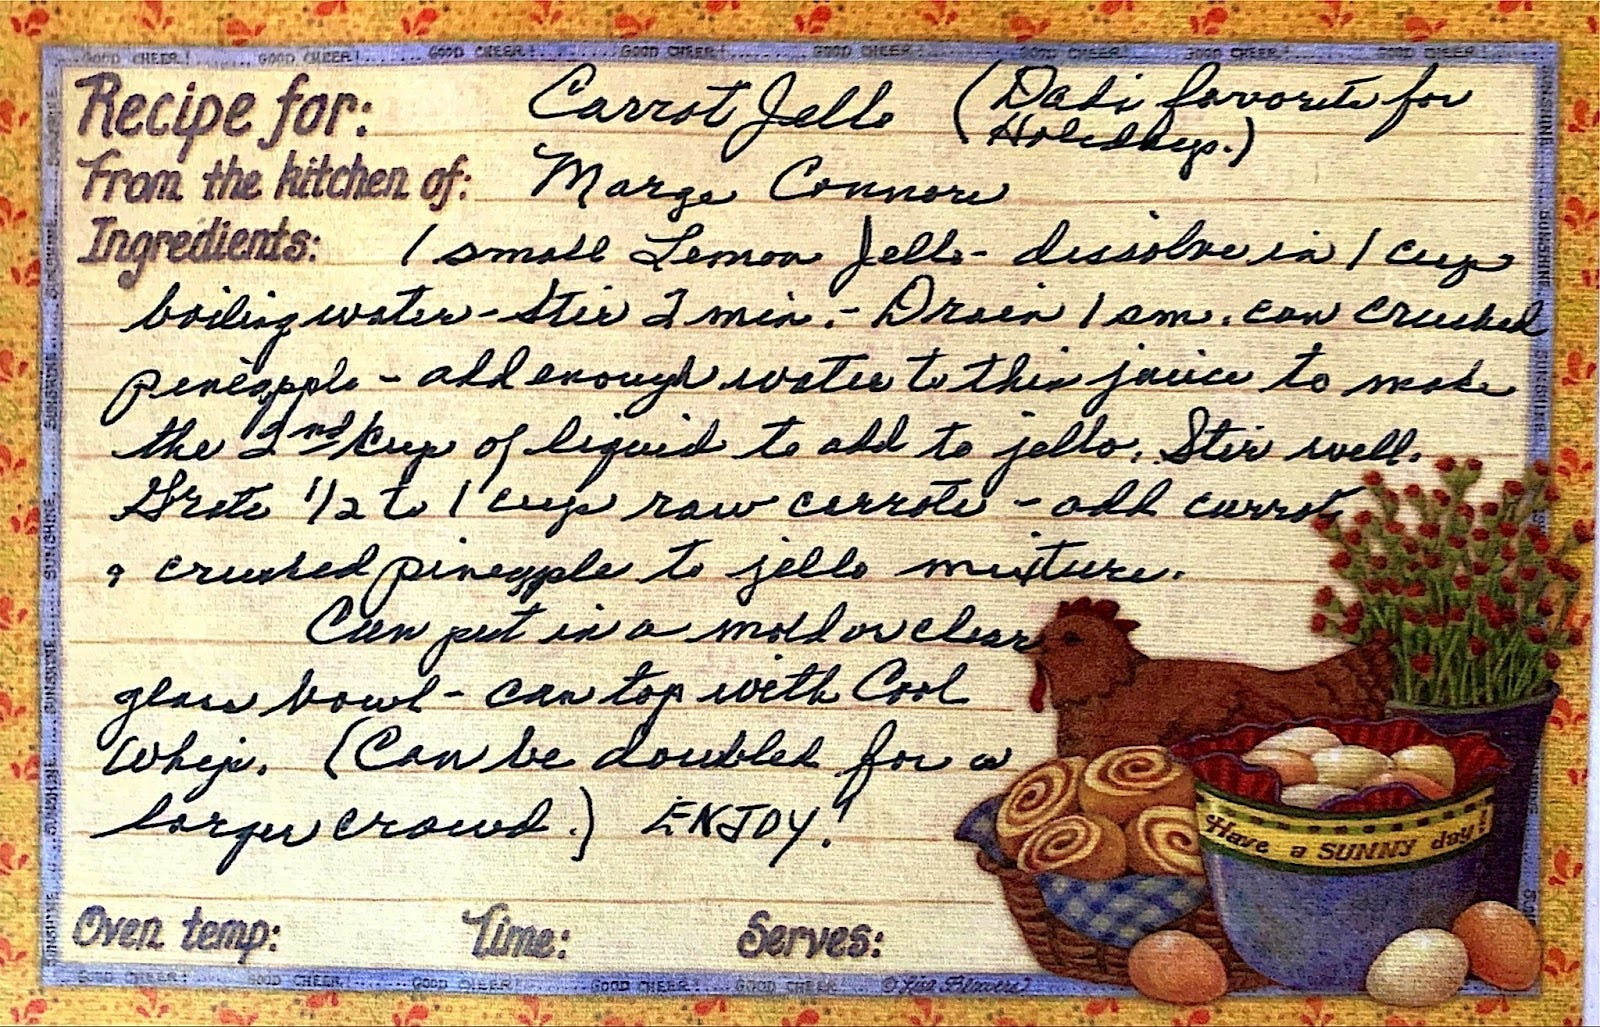 GOOD CHEER! GOOD CHEER! GOOD CHEER! GOOD CHEER! GOOD CHEER! GOOD CHEER! GOOD CHEER! GOOD CHEER!
Recipe for: Carrot Jello (Dad's favorite for
Holidays.)
From the kitchen of: Marge Connors
Ingredients: 1 small Lemon Jello - dissolve in 1 cup
boiling water - Stir 2 min. - Drain 1 sm. can crushed
pineapple - add enough water to this juice to make
the 2nd cup of liquid to add to jello. Stir well.
Grate 1/2 to 1 cup raw carrots - add carrots
& crushed pineapple to jello mixture.
Can put in a mold or clear
glass bowl - can top with Cool
Whip. (Can be doubled for a
larger crowd.) ENJOY!
Have a SUNNY day!
Oven temp: Time: Serves:
GOOD CHEER! GOOD CHEER! GOOD CHEER! GOOD CHEER! GOOD CHEER!
SUNSHINE SUNSHINE SUNSHINE SUNSHINE
SUNSHINE SUNSHINE SUNSHINE